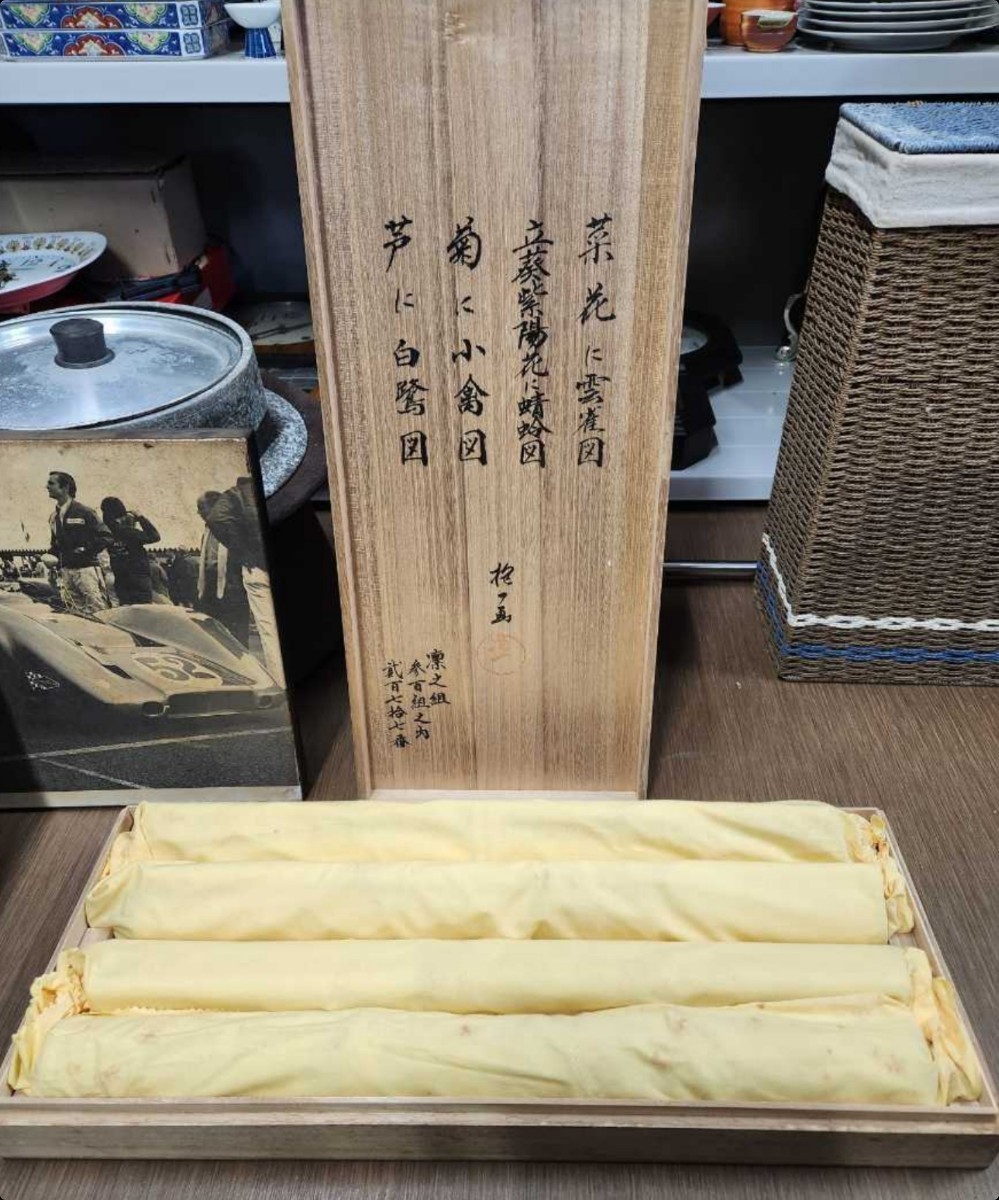 菜花に雲雀図
立葵紫陽花に蜻蛉図
菊に小禽図
芦に白鷺図
凛之組
参百組之内
弐百七拾七番
53